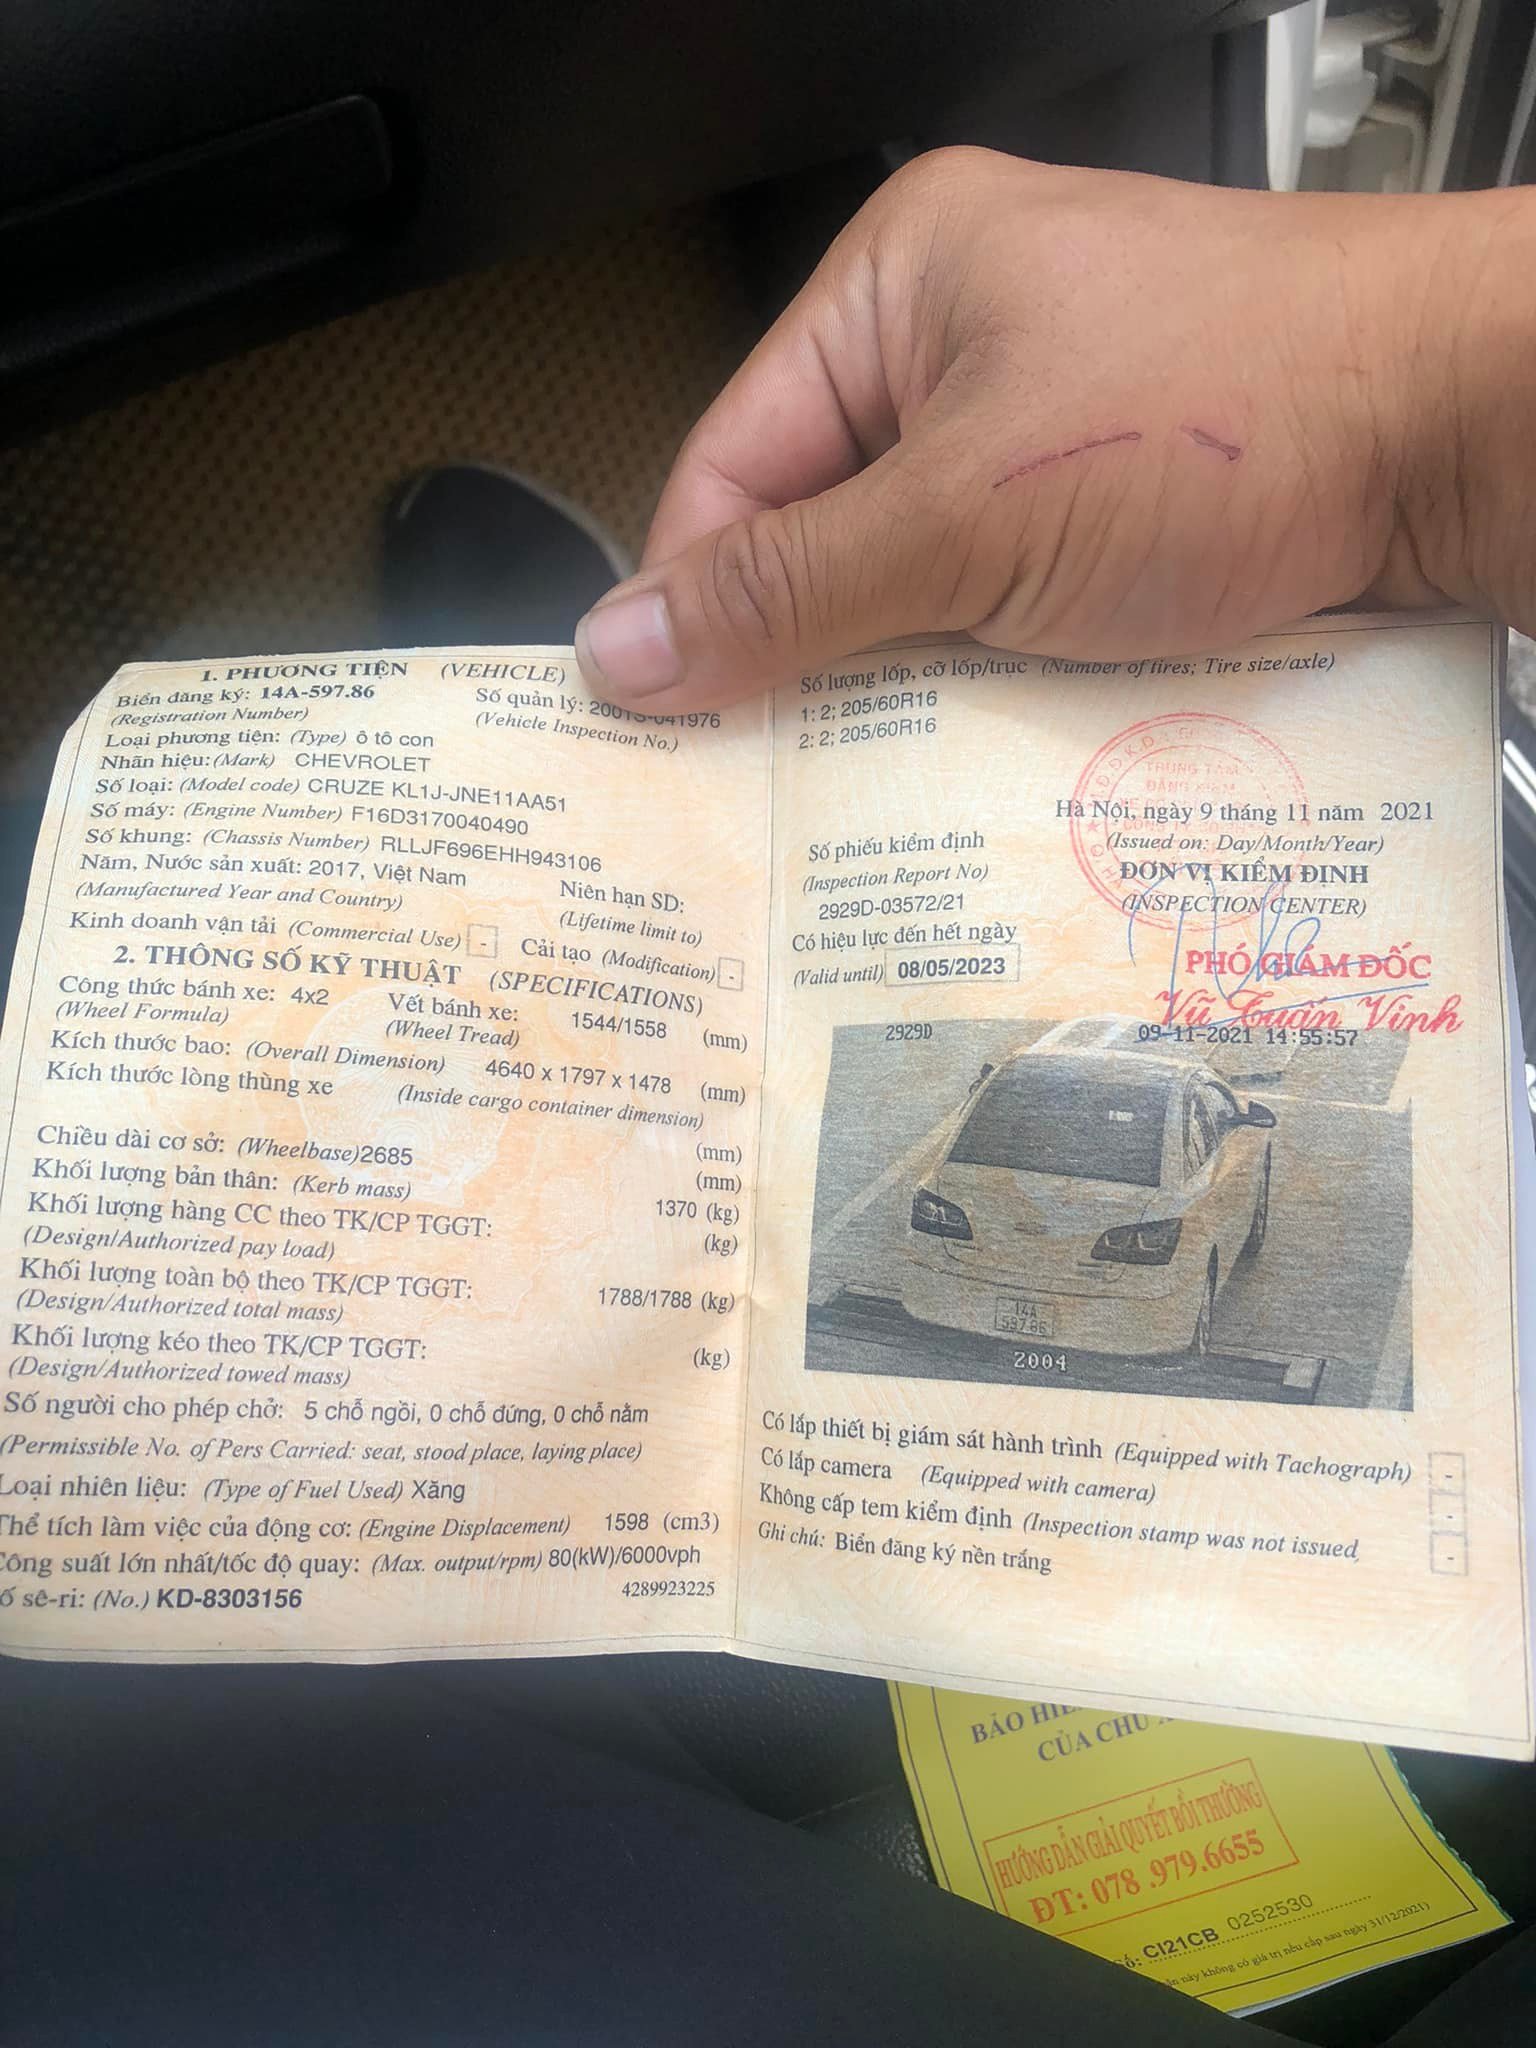 1. PHƯƠNG TIỆN (VEHICLE)
Biển đăng ký: 14A-597.86 Số quản lý: 2001S-041976
(Registration Number) (Vehicle Inspection No.)
Loại phương tiện: (Type) ô tô con
Nhãn hiệu: (Mark) CHEVROLET
Số loại: (Model code) CRUZE KL1J-JNE11AA51
Số máy: (Engine Number) F16D3170040490
Số khung: (Chassis Number) RLLJF696EHH943106
Năm, Nước sản xuất: 2017, Việt Nam Niên hạn SD:
(Manufactured Year and Country) (Lifetime limit to)
Kinh doanh vận tải (Commercial Use) - Cải tạo (Modification) -
2. THÔNG SỐ KỸ THUẬT (SPECIFICATIONS)
Công thức bánh xe: 4x2 Vết bánh xe: 1544/1558 (mm)
(Wheel Formula) (Wheel Tread)
Kích thước bao: (Overall Dimension) 4640 x 1797 x 1478 (mm)
Kích thước lòng thùng xe (Inside cargo container dimension)
(mm)
Chiều dài cơ sở: (Wheelbase) 2685 (mm)
Khối lượng bản thân: (Kerb mass) 1370 (kg)
Khối lượng hàng CC theo TK/CP TGGT: (kg)
(Design/Authorized pay load)
Khối lượng toàn bộ theo TK/CP TGGT: 1788/1788 (kg)
(Design/Authorized total mass)
Khối lượng kéo theo TK/CP TGGT: (kg)
(Design/Authorized towed mass)
Số người cho phép chở: 5 chỗ ngồi, 0 chỗ đứng, 0 chỗ nằm
(Permissible No. of Pers Carried: seat, stood place, laying place)
Loại nhiên liệu: (Type of Fuel Used) Xăng
Thể tích làm việc của động cơ: (Engine Displacement) 1598 (cm3)
Công suất lớn nhất/tốc độ quay: (Max. output/rpm) 80(kW)/6000vph
ố sê-ri: (No.) KD-8303156 4289923225
Số lượng lốp, cỡ lốp/trục (Number of tires; Tire size/axle)
1: 2; 205/60R16
2: 2; 205/60R16
TRUNG TÂM
ĐĂNG KIỂM
Hà Nội, ngày 9 tháng 11 năm 2021
Số phiếu kiểm định (Issued on: Day/Month/Year)
(Inspection Report No) ĐƠN VỊ KIỂM ĐỊNH
2929D-03572/21 (INSPECTION CENTER)
Có hiệu lực đến hết ngày
(Valid until) 08/05/2023 PHÓ GIÁM ĐỐC
Vũ Tuấn Vinh
2929D 09-11-2021 14:55:57
14A
597.86
2004
Có lắp thiết bị giám sát hành trình (Equipped with Tachograph) -
Có lắp camera (Equipped with camera) -
Không cấp tem kiểm định (Inspection stamp was not issued, -
Ghi chú: Biển đăng ký nền trắng
BẢO HIỂ
CỦA CHỦ
HƯỚNG DẪN GIẢI QUYẾT BỒI THƯỜNG
ĐT: 078 .979.6655
Số: CI21CB 0252530
này không có giá trị nếu cấp sau ngày 31/12/2021)